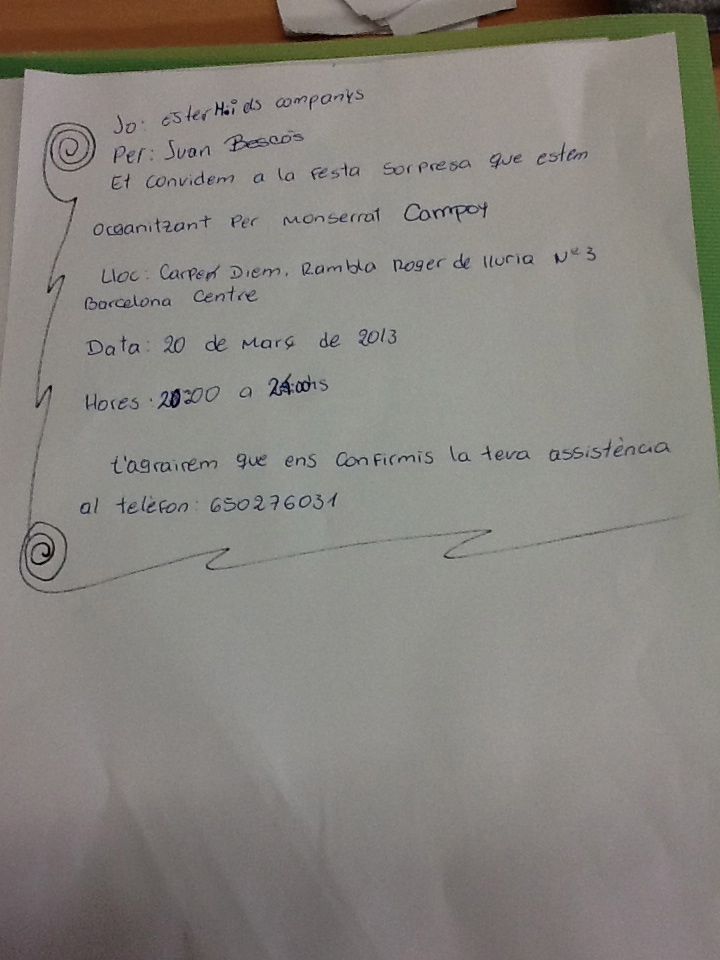 Jo: ester companys
Per: Juan Bescós
Et convidem a la festa sorpresa que estem
organitzant per Monserrat Campoy
Lloc: Carpen Diem, Rambla Roger de lluria Nº 3
Barcelona Centre
Data: 20 de Març de 2013
Hores: a
t'agrairem que ens confirmis la teva assistència
al telèfon: 650276031